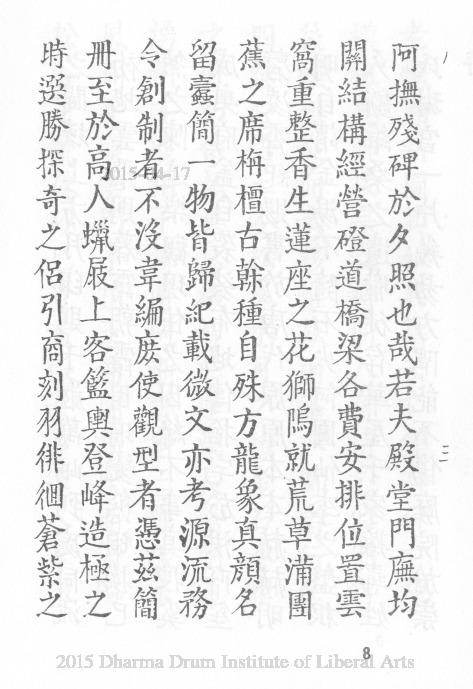 阿撫殘碑於夕照也哉若夫殿堂門廡均
關結構經營磴道橋梁各費安排位置雲
窩重整香生蓮座之花獅隝就荒草滿團
蕉之席栴檀古榦種自殊方龍象真顔名
留蠹簡一物皆歸紀載微文亦考源流務
令創制者不沒韋編庶使觀型者憑茲簡
冊至於高人蠟屐上客籃輿登峰造極之
時選勝探奇之侣引商刻羽徘徊蒼紫之
三
8
2015-04-17
2015 Dharma Drum Institute of Liberal Arts